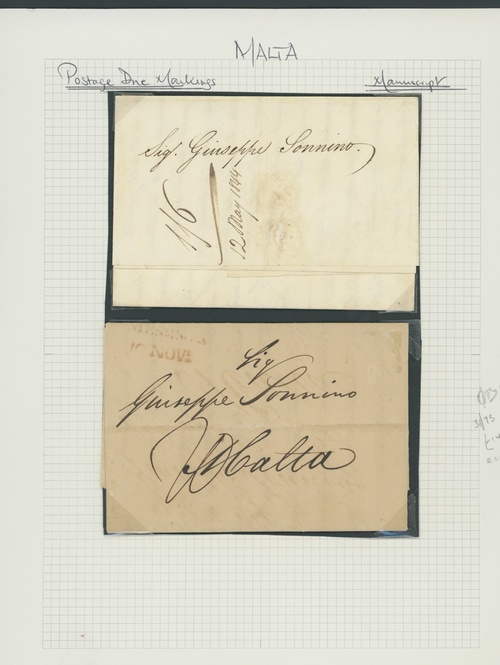 MALTA
Postage Due Markings
Manuscript
Sigr. Giuseppe Sonnino.
1/6
12 May 1844
NOV
Sig
Giuseppe Sonnino
Malta